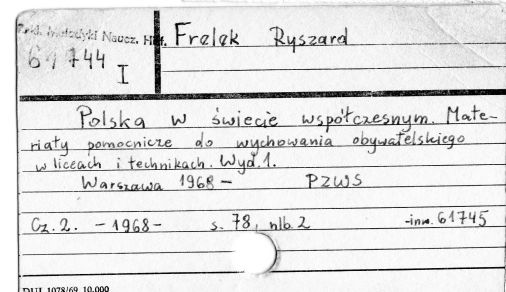 Zakł. Metodyki Naucz. Hist.
61744
I
Frelek Ryszard
Polska w świecie współczesnym. Mate-
riały pomocnicze do wychowania obywatelskiego
w liceach i technikach. Wyd. 1.
Warszawa 1968 - PZWS
Cz. 2. - 1968 - s. 78, nlb. 2 -inw. 61745
DUJ. 1078/69 10.000